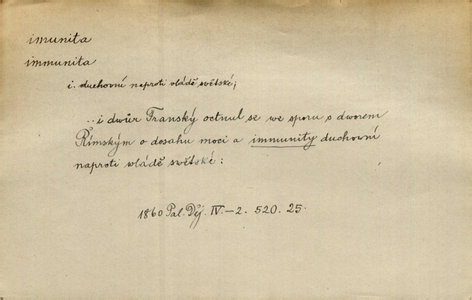 imunita
immunita
i. duchovní naproti vládě světské;
..i dwůr Franský octnul se we sporu s dworem
Římským o dosahu moci a immunity duchovní
naproti wládě swětské:
1860 Pal. Děj. IV-2. 520. 25.